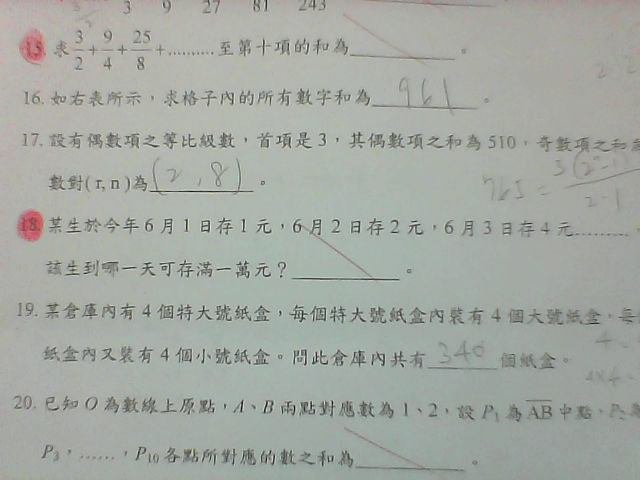 3 9 27 81 243
15. 求 3/2 + 9/4 + 25/8 + ..........至第十項的和為__________。
16. 如右表所示，求格子內的所有數字和為 961 。
17. 設有偶數項之等比級數，首項是 3，其偶數項之和為 510，奇數項之和
數對( r, n )為 (2 , 8) 。
765 = 3(2ⁿ-1) / 2-1
18. 某生於今年 6 月 1 日存 1 元，6 月 2 日存 2 元，6 月 3 日存 4 元.........
該生到哪一天可存滿一萬元？__________。
19. 某倉庫內有 4 個特大號紙盒，每個特大號紙盒內裝有 4 個大號紙盒，每
紙盒內又裝有 4 個小號紙盒。問此倉庫內共有 340 個紙盒。
4
4x4
20. 已知 O 為數線上原點，A、B 兩點對應數為 1、2，設 P₁ 為 AB 中點，P₂
P₃，……，P₁₀ 各點所對應的數之和為__________。